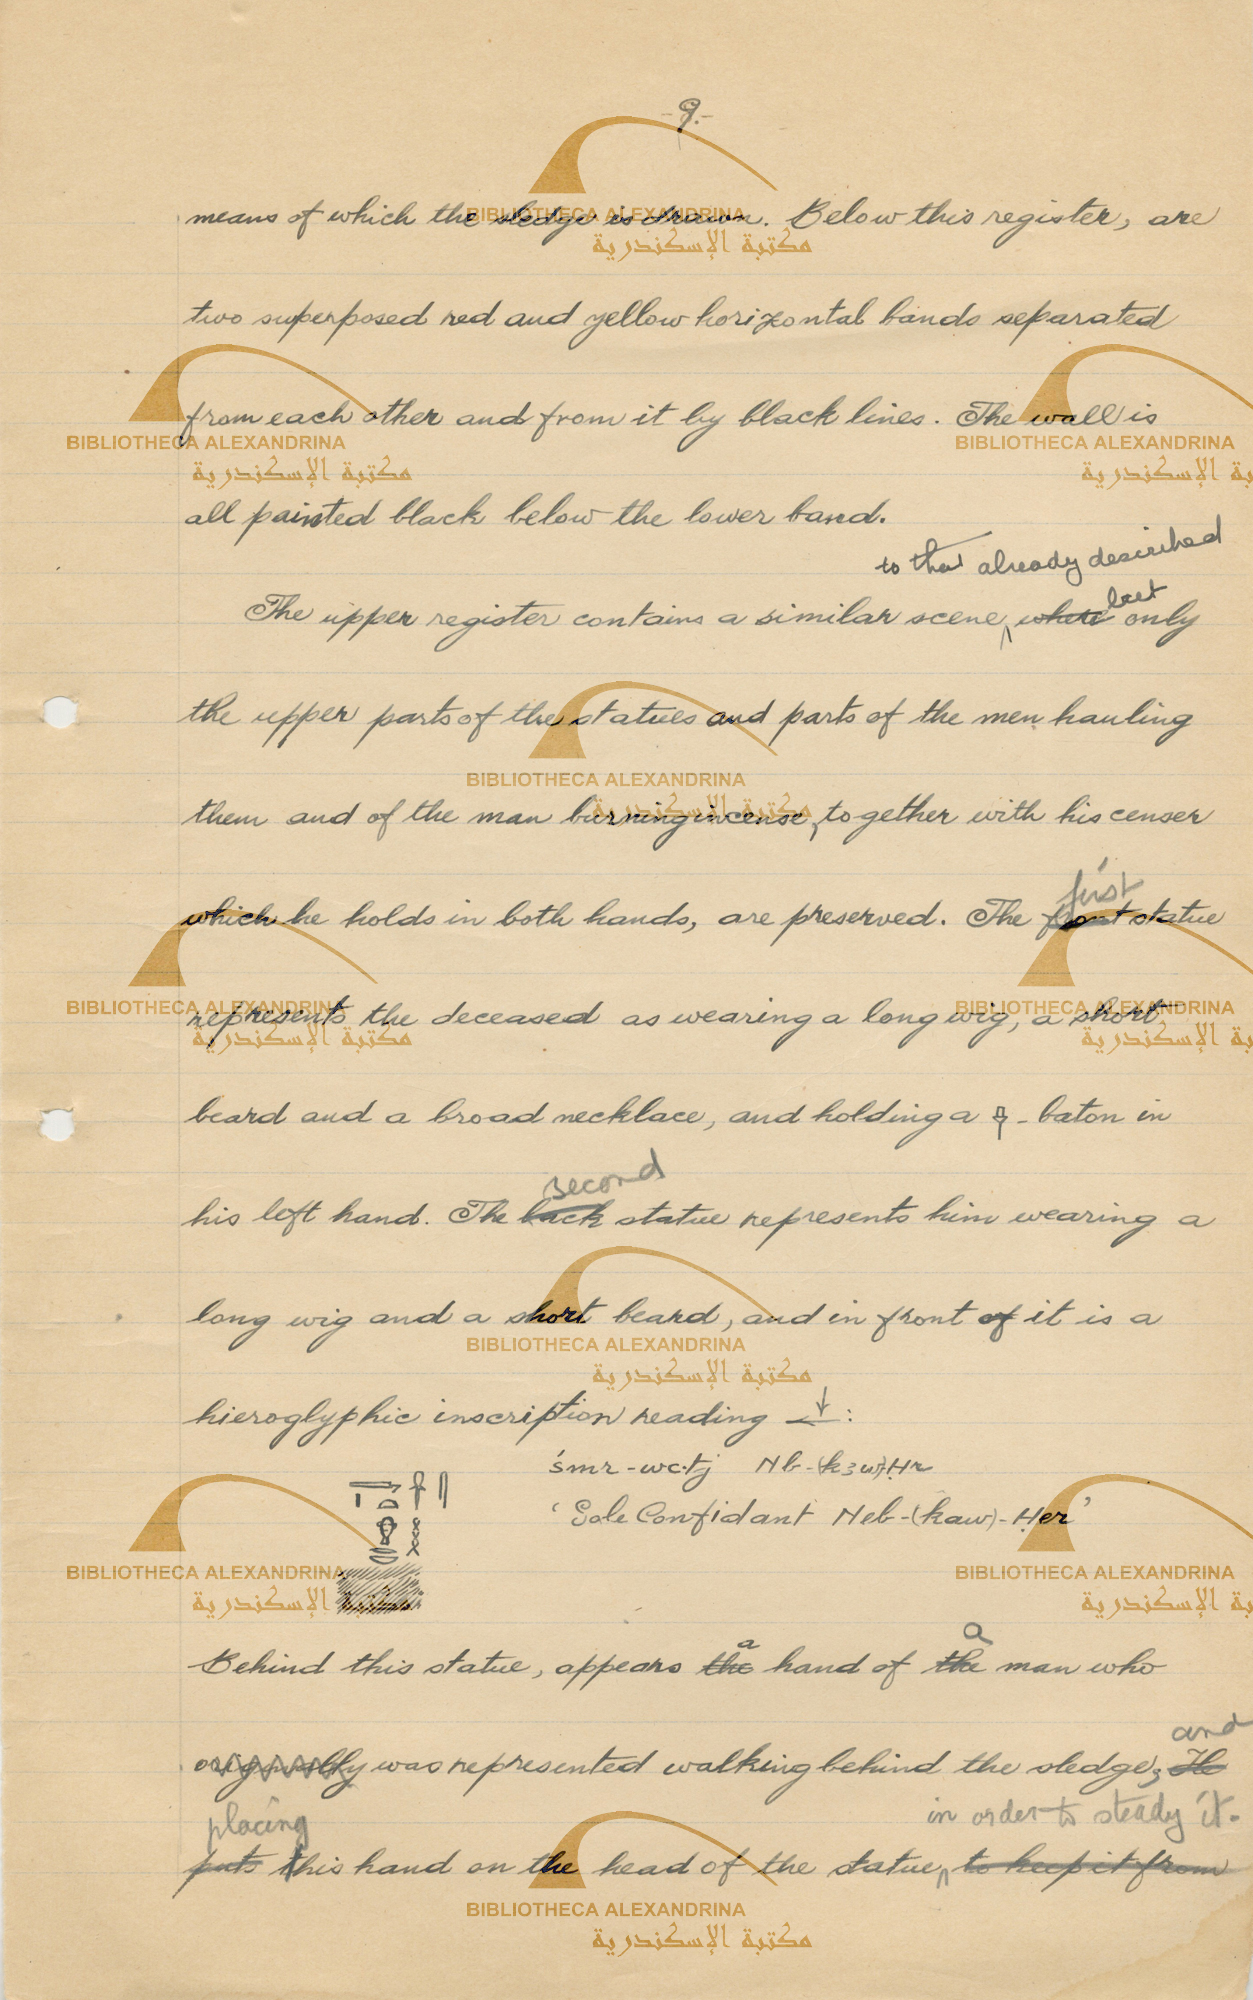 -9.-
means of which the sledge is drawn. Below this register, are
two superposed red and yellow horizontal bands separated
from each other and from it by black lines. The wall is
all painted black below the lower band.
to that already described
The upper register contains a similar scene, where but only
the upper parts of the statues and parts of the men hauling
them and of the man burning incense, together with his censer
which he holds in both hands, are preserved. The front first statue
represents the deceased as wearing a long wig, a short
beard and a broad necklace, and holding a - baton in
second
his left hand. The back statue represents him wearing a
long wig and a short beard, and in front of it is a
hieroglyphic inscription reading :
śmr-wc.tj Nb-(k3w)-Ḥr
'Sole Confidant Neb-(kaw)-Ḥer'
a a
Behind this statue, appears the hand of the man who
and
originally was represented walking behind the sledge; He
placing in order to steady it.
puts his hand on the head of the statue, to keep it from
BIBLIOTHECA ALEXANDRINA
مكتبة الإسكندرية